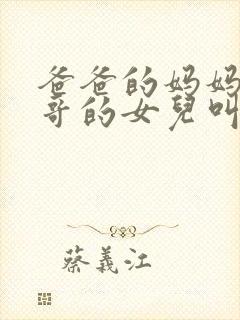 爸爸的妈妈
哥的女兒叫
蔡義江